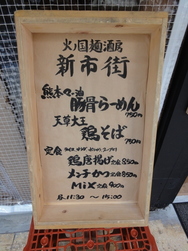 火の国麺酒房
新市街
熊本マー油
豚骨らーめん
750円
天草大王
鶏そば
750円
定食
鶏唐揚げ定食850円
メンチかつ定食850円
Mix定食900円
昼11:30〜15:00